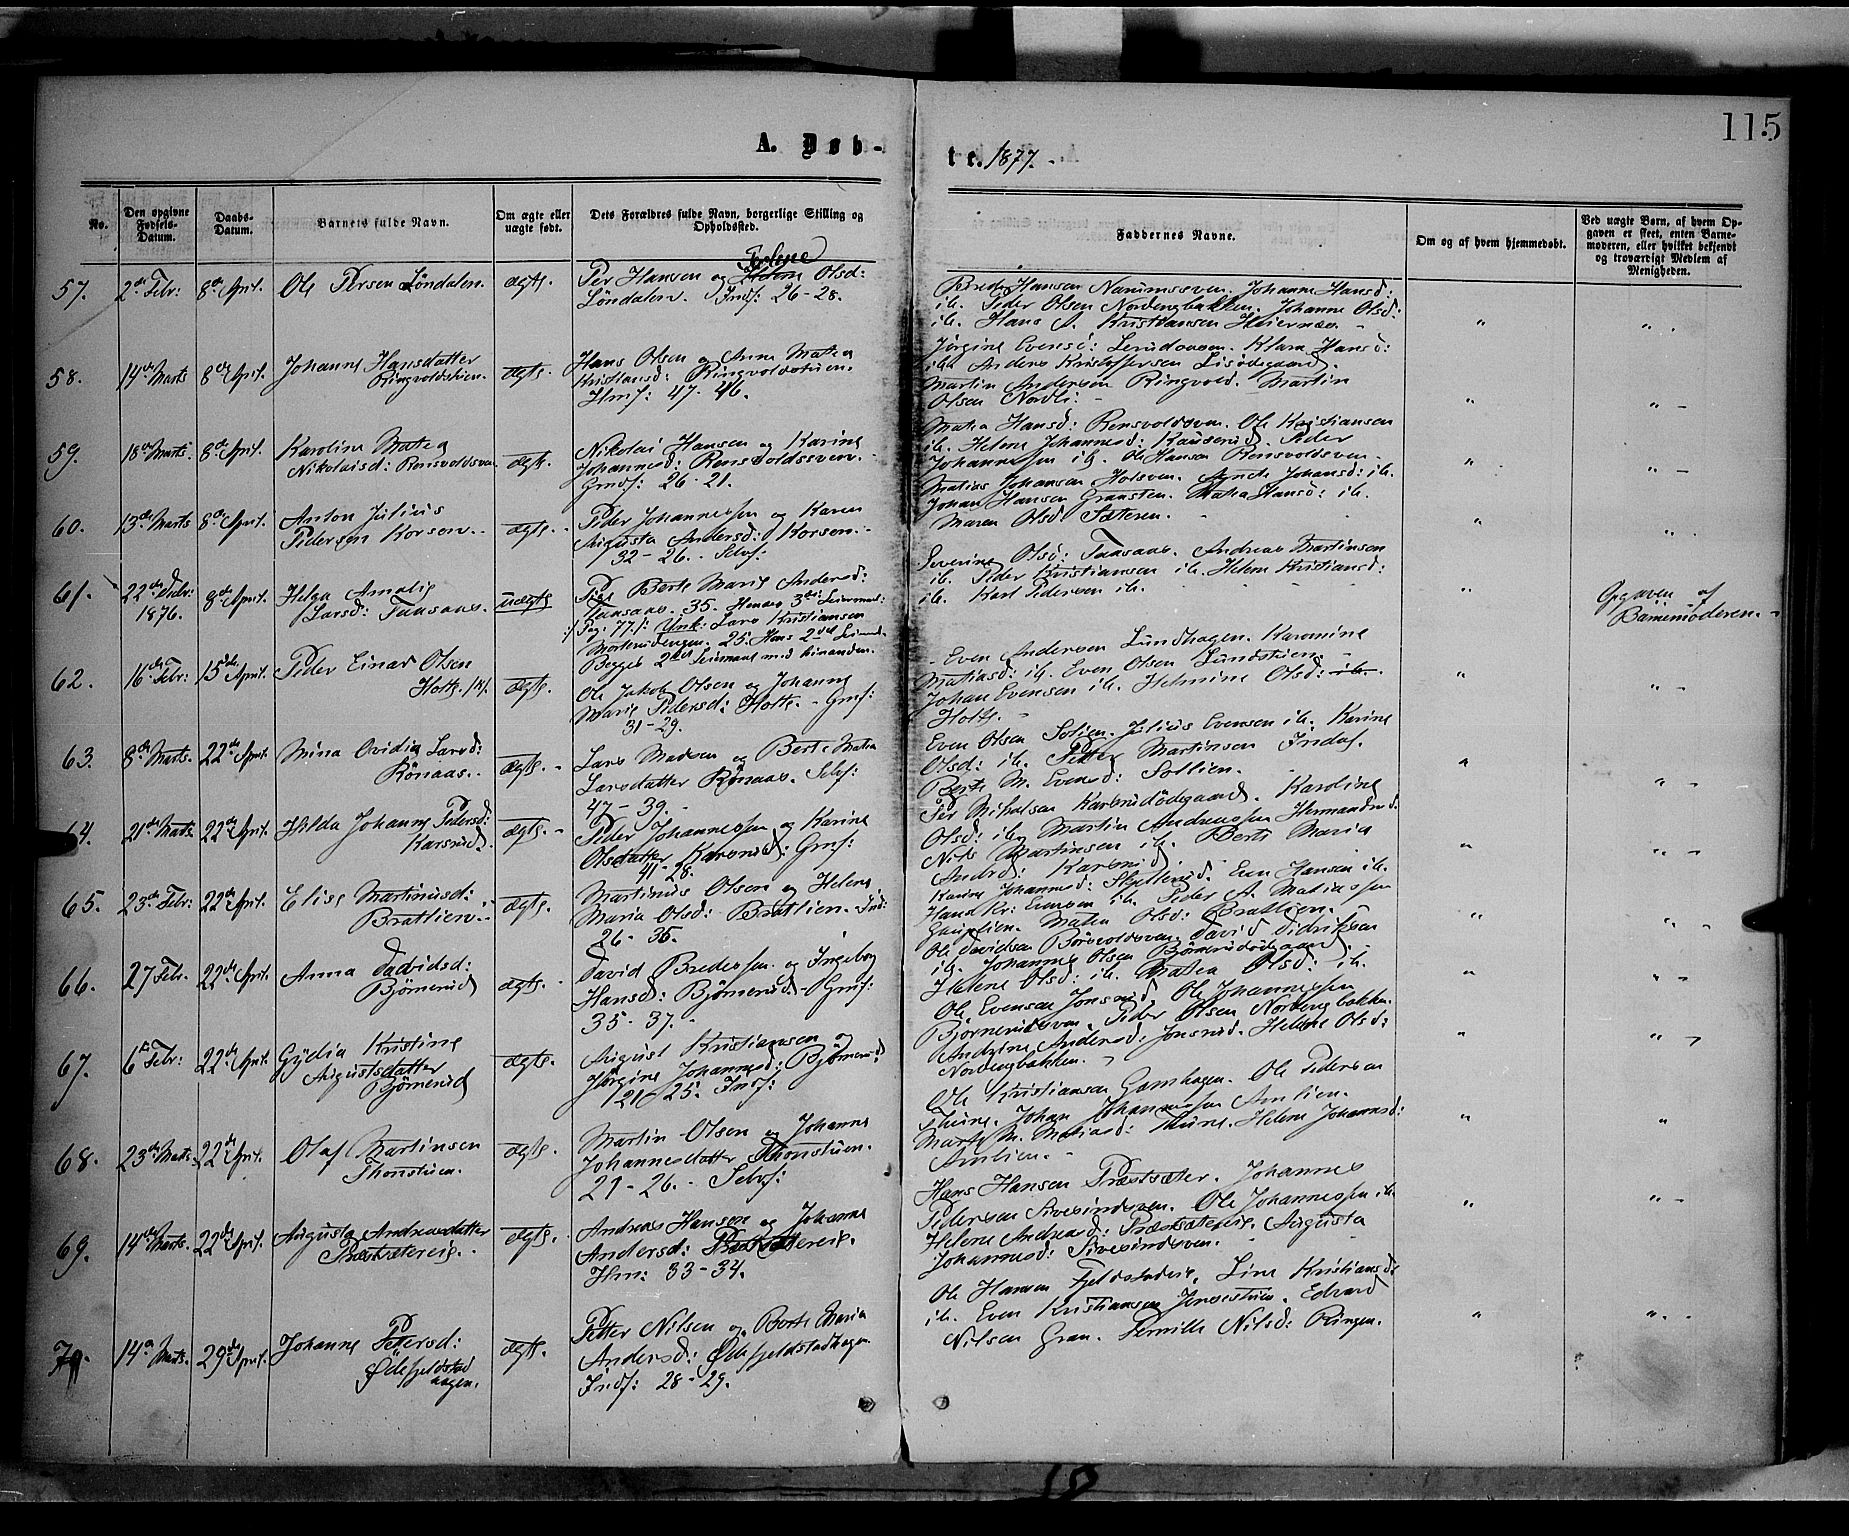 115
A. Døb-
te. 1877.
No.
Den opgivne Fødsels-Datum.
Daabs-Datum.
Barnets fulde Navn.
Om ægte eller uægte født.
Dets Forældres fulde Navn, borgerlige Stilling og Opholdssted.
Faddernes Navne.
Om og af hvem hjemmedøbt.
Ved uægte Børn, af hvem Op-
gaven er skeet, enten Barne-
moderen, eller hvilket bekjendt
og troværdigt Medlem af
Menigheden.
57. 2de Febr: 8de April. Ole Persen Løndalen. ægte.
Per Hansen og Helene Olsd:
Løndalen. Inds: 26-28.
Hansen Narumseven. Johanne Hansd:
ib. Peder Olsen Nordengbakken. Johanne Olsd:
ib. Hans A. Kristiansen
58. 14de Marts 8de April. Johanne Hansdatter
Ringvoldstuen. ægte.
Hans Olsen og Anne Mathea
Kristiansd: Ringvoldstuen.
Hmf: 47-46.
Jørgine Evensd: Klara Hansd:
ib. Anders Kristoffersen
Martin Andersen Ringvold. Martin
Olsen Nordli.
59. 18de Marts 8de April. Karoline Matea
Nikolaisd: Rensvoldsven ægte.
Nikolai Hansen og Karine
Johannesd: Rensvoldsven.
Gmds: 26-21.
Matea Hansd: Rensvoldsven. Ole Kristiansen
ib. Helene Johannesd: Peder
Johannessen ib. Ole Hansen Rensvoldsven.
Matias Johansen Holsven. Johansd: ib.
Johan Hansen Gransten. Matea Hansd: ib.
60. 13de Marts 8de April. Anton Julius
Pedersen Korsen. ægte.
Peder Johannessen og Karen
Augusta Andersd: Korsen.
32-26. Selvf:
Maren Olsd: Sæteren.
61. 22de Febr: 1876. 8de April. Helga Amalie
Larsd: Taasaas. uægte
Pige Berte Marie Andersd:
Taasaas. 35. Hendes 3die Leiermaal:
Pag. 77. Unk: Lars Kristiansen
25. Hans 2det
Begges 2det Leiermaal med hinanden.
Severine Olsd: Taasaas. Andreas Martinsen
ib. Peder Kristiansen ib. Helene Kristiansd:
ib. Karl Pedersen ib.
Opgaven af
Barnemoderen.
62. 16de Febr: 15de April. Peder Einar Olsen
Holte. ægte.
Ole Jakob Olsen og Johanne
Marie Pedersd: Holte. Gmf:
31-29.
Even Andersen Lundhagen. Karenine
Matiasd: ib. Even Olsen Lundstuen.
Johan Evensen ib. Helmine Olsd: ib.
Holte.
63. 8de Marts. 22de April. Mina Ovidia Larsd:
Rønaas. ægte.
Lars Madsen og Berte Matea
Larsdatter Rønaas. Selvf:
47-39.
Even Olsen Solien. Julius Evensen ib. Karine
Olsd: ib. Petter Martinsen Indal.
Berte M. Evensd: Sollien.
64. 21de Marts. 22de April. Hilda Johanne Pedersd:
Karsrud. ægte.
Peder Johannessen og Karine
Olsdatter Karsrud. Gmf:
41-28.
Per Mikalsen Karsrudødegaard. Karoline
Olsd: ib. Martin Andreassen
Nils Martinsen ib. Berte Maria
Andrd: Karsrud.
65. 23de Febr: 22de April. Elise Martinusd:
Brattlien. ægte.
Martinus Olsen og Helene
Maria Olsd: Brattlien. Ind:
26-35.
Karine Johannesd: Even Hansen ib.
Hans Kr: Evensen ib. Peder A. Matiassen
Matea Olsd: Brattlien.
66. 27 Febr. 22de April. Anna Davidsd:
Bjørnerud ægte.
David Bredessen og Ingeborg
Hansd: Bjørnerud. Gmf:
35-37.
Ole Davidsen David Didriksen
ib. Johannes Olsen Bjørnerudødegaard.
Helene Olsd: ib. Matea Olsd: ib.
67. 6te Febr: 22de April. Gydia Kristine
Augustsdatter
Bjørnerud ægte.
August Kristiansen og
Jørgine Johannesd: Bjørnerud
21-25. Inds:
Ole Evensen Jonsrud. Ole Johannessen
Bjørnerudsven. Peder Olsen Nordengbakken.
Andrine Andersd: Jonsrud. Helene Olsd:
Nordengbakken.
68. 23de Marts 22de April. Olaf Martinsen
Thonstuen. ægte.
Martin Olsen og Johanne
Johannesdatter Thonstuen.
21-26. Selvf:
Ole Kristiansen Gamhagen. Ole Pedersen
Thune. Johan Johannessen Amlien.
Marte M. Matiasd: Thune. Helene Johannesd:
Amlien.
69. 14de Marts. 22de April. Augusta Andreasdatter
Præstsætereie. ægte.
Andreas Hansen og Johanne
Andersd: Præstsætereie.
Hm: 33-34.
Hans Hansen Præstsæter. Johannes
Pedersen Sivesindsven. Ole Johannessen ib.
Helene Andreasd: Præstsætereie. Augusta
Johannesd: Sivesindsven.
70. 14de Marts. 29de April. Johanne Pettersd:
Ødefjeldstad
hagen. ægte.
Petter Nilsen og Berte Maria
Andersd: Ødefjeldstadhagen
Inds: 28-29.
Ole Hansen Fjeldstadeie. Line Kristiansd:
ib. Even Kristiansen Edvard
Nilsen Gran. Pernille Nilsd: Ringen.